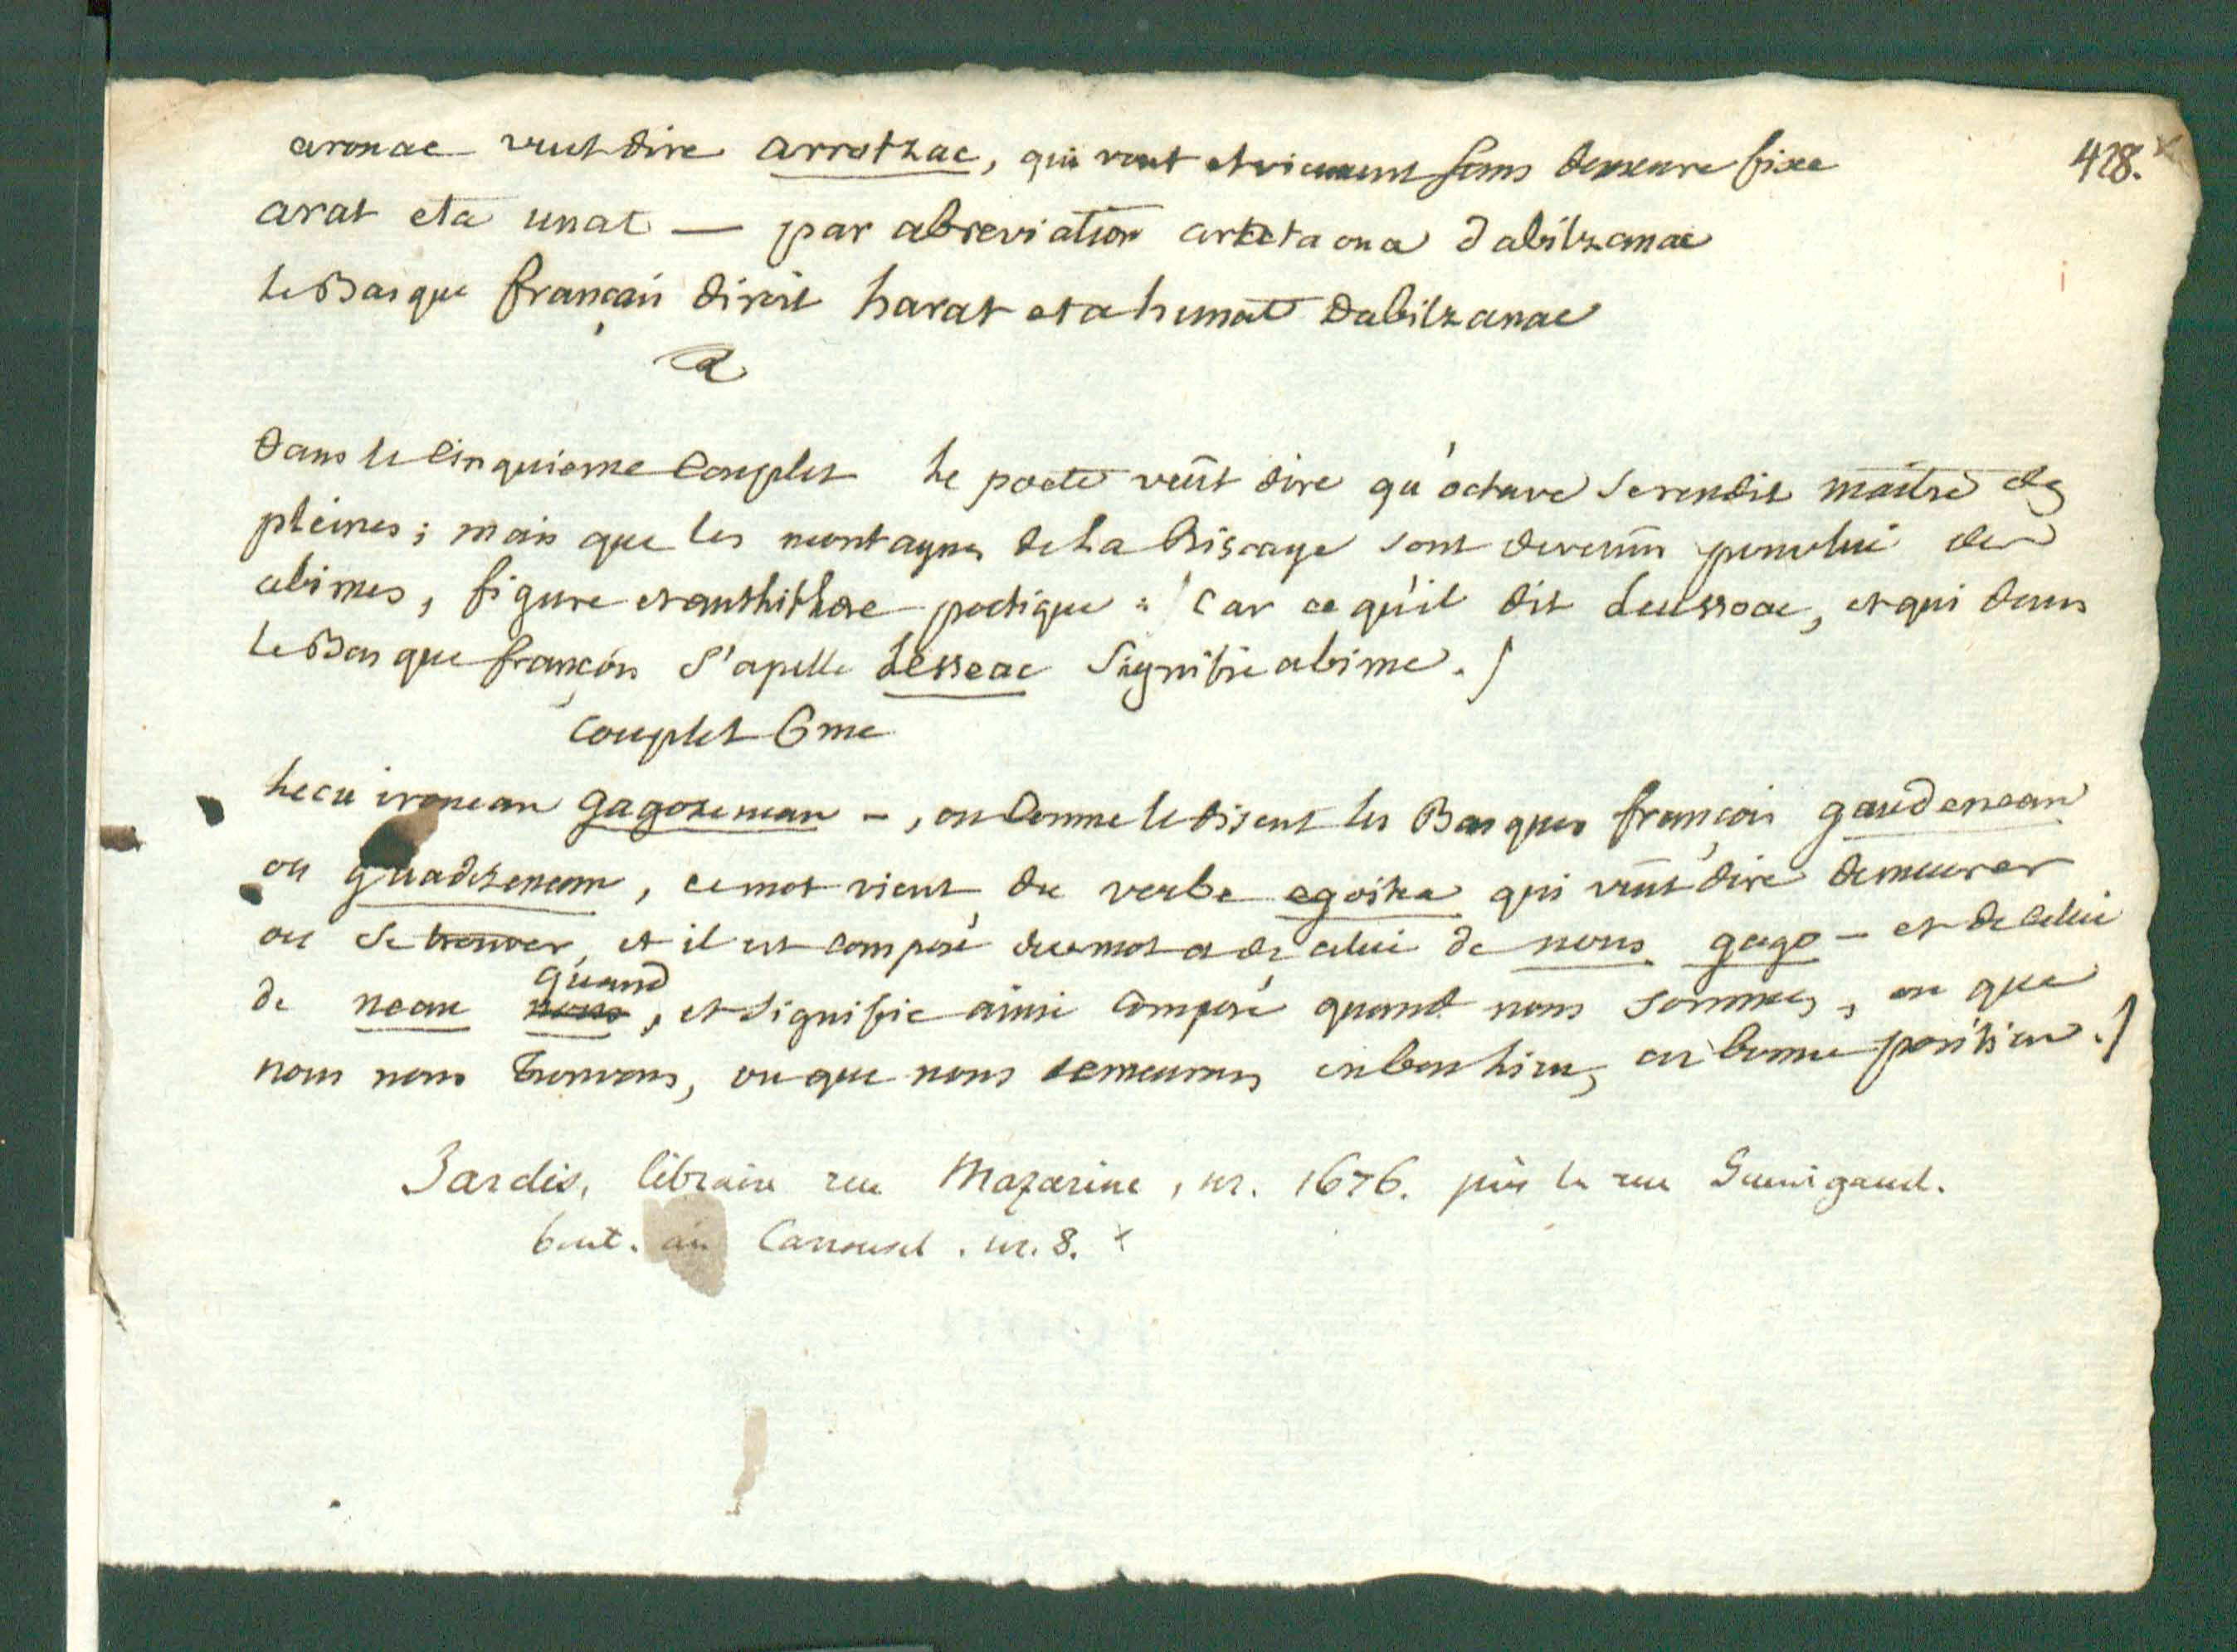 428.
aronac veut dire arrotzac, qui vont et viennent sans demeure fixe
arat eta unat — par abreviation artetaona dabilzanac
le Basque français diroit harat eta hunat dabilzanac
Dans le Cinquieme Couplet le poete veüt dire qu'octave se rendit maitre des
pleines; mais que les montagnes de la Biscaye sont devenües pour lui des
abimes, figure et anthithese poetique: Car ce qu'il dit leussoac, et qui dans
le Basque françois s'apelle lesseac signifie abime./
Couplet 6me
hecu ironean gagozenean -, ou Comme le disent les Basques françois gaudenean
ou guadezenean, ce mot vient du verbe egoitza qui veüt dire demeurer
ou se trouver, et il est composé du mot a de celui de nous gago - et de celui
de nean nous quand, et signifie ainsi composé quand nous sommes, ou que
nous nous trouvons, ou que nous demeurons en bon lieu, en bonne position./
Jardis, libraire rue Mazarine, nr. 1676. près la rue Guenigaud.
but. au Carousel. nr. 8.